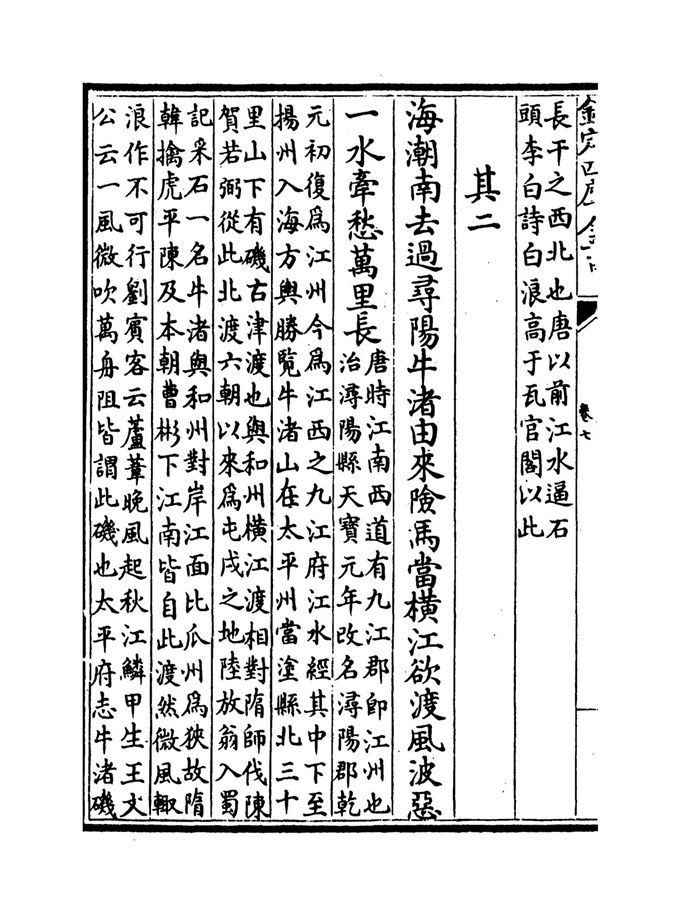 欽定四庫全書
卷七
長干之西北也唐以前江水逼石
頭李白詩白浪高于瓦官閣以此
其二
海潮南去過尋陽牛渚由來險馬當橫江欲渡風波惡
一水牽愁萬里長
唐時江南西道有九江郡即江州也
治潯陽縣天寶元年改名潯陽郡乾
元初復爲江州今爲江西之九江府江水經其中下至
揚州入海方輿勝覽牛渚山在太平州當塗縣北三十
里山下有磯古津渡也與和州橫江渡相對隋師伐陳
賀若弼從此北渡六朝以來爲屯戍之地陸放翁入蜀
記采石一名牛渚與和州對岸江面比瓜州爲狹故隋
韓擒虎平陳及本朝曹彬下江南皆自此渡然微風輙
浪作不可行劉賓客云蘆葦晚風起秋江鱗甲生王文
公云一風微吹萬舟阻皆謂此磯也太平府志牛渚磯